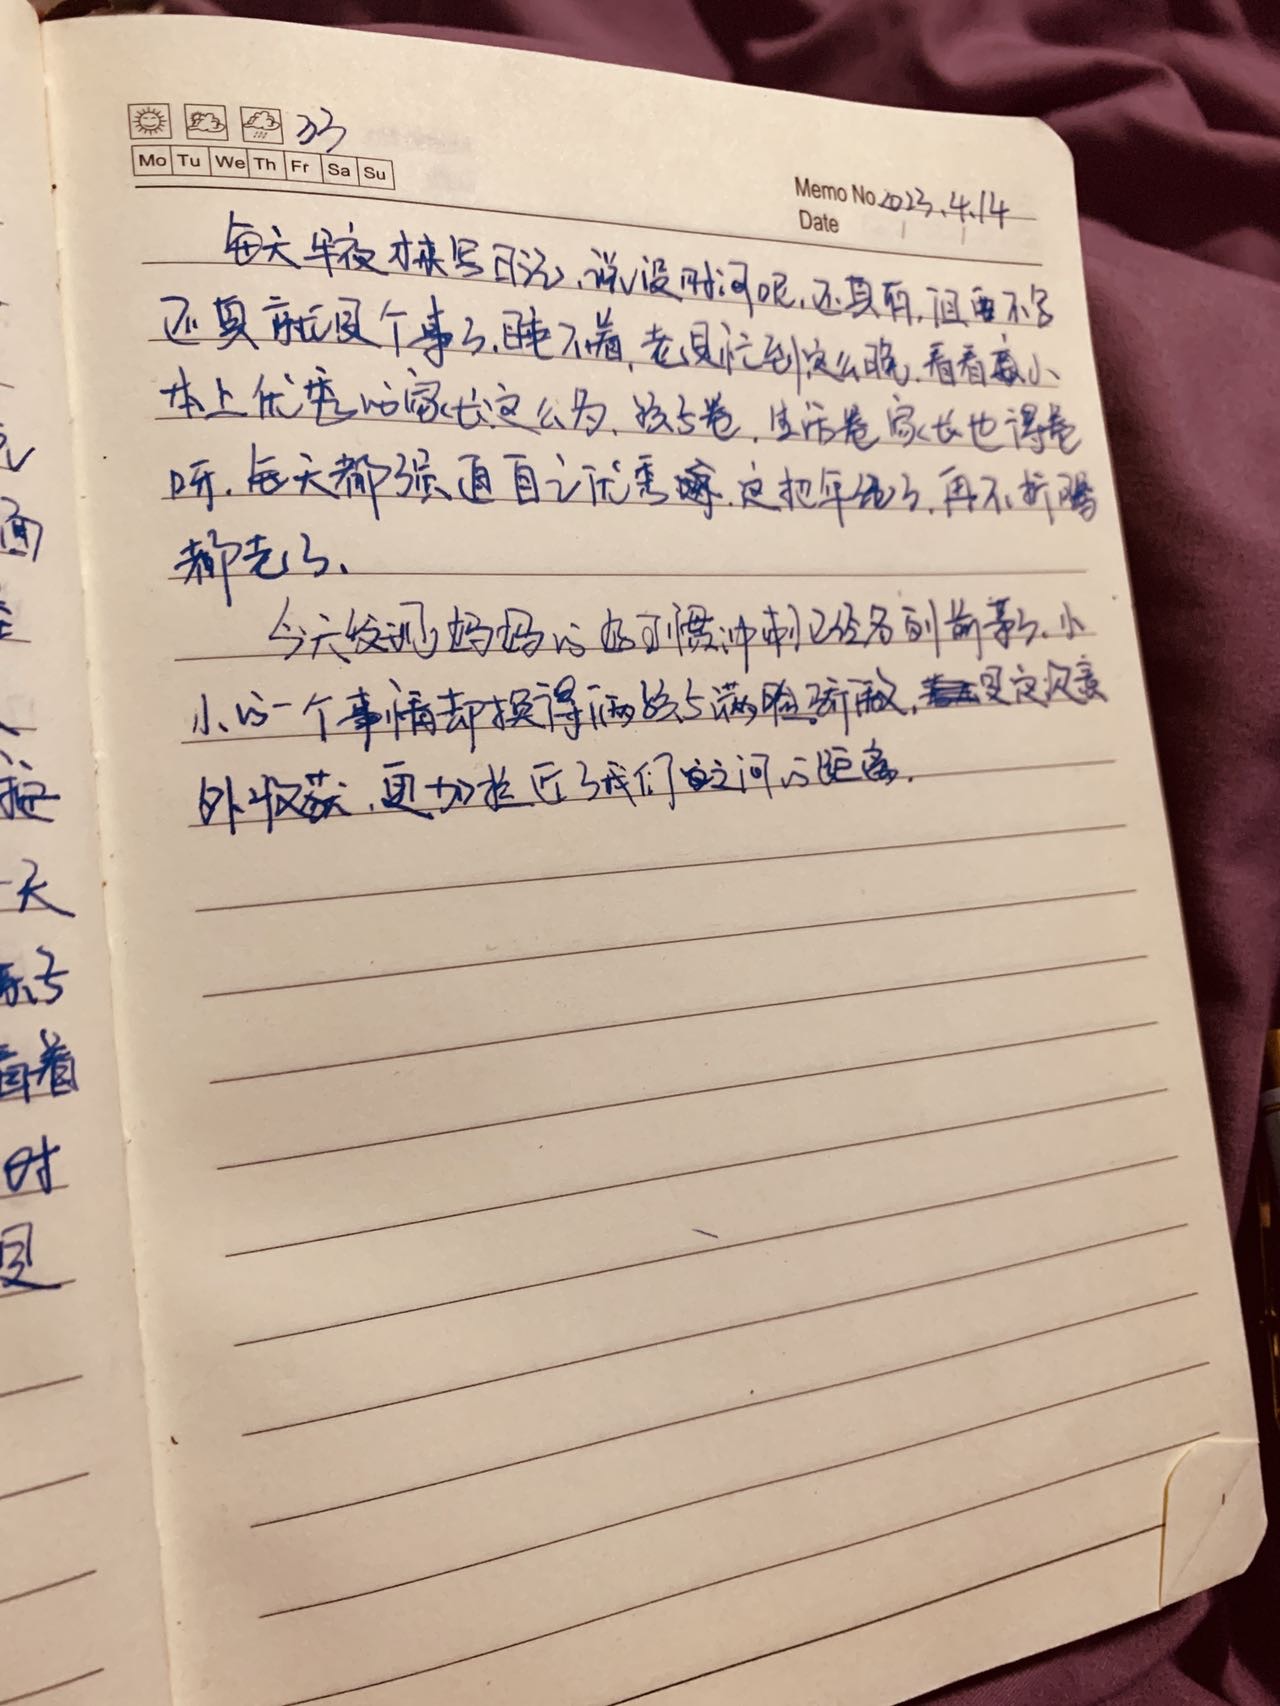 23
Mo Tu We Th Fr Sa Su
Memo No 2023.4.14
Date
每天半夜才来写日记,说没时间呢,还真有,但要不写
还真就是个事了,睡不着,老是忙到这么晚,看看小
本上优秀的家长这么多,孩子卷,生活卷家长也得卷
呀,每天都强逼自己优秀嘛,这把年纪了,再不折腾
都老了、
今天发现妈妈的好习惯冲刺已经名列前茅了、小
小的一个事情却换得两孩子满脸骄傲,是这次意
外收获,更加拉近了我们之间的距离.
面
按
天
孩子
看着
时
是